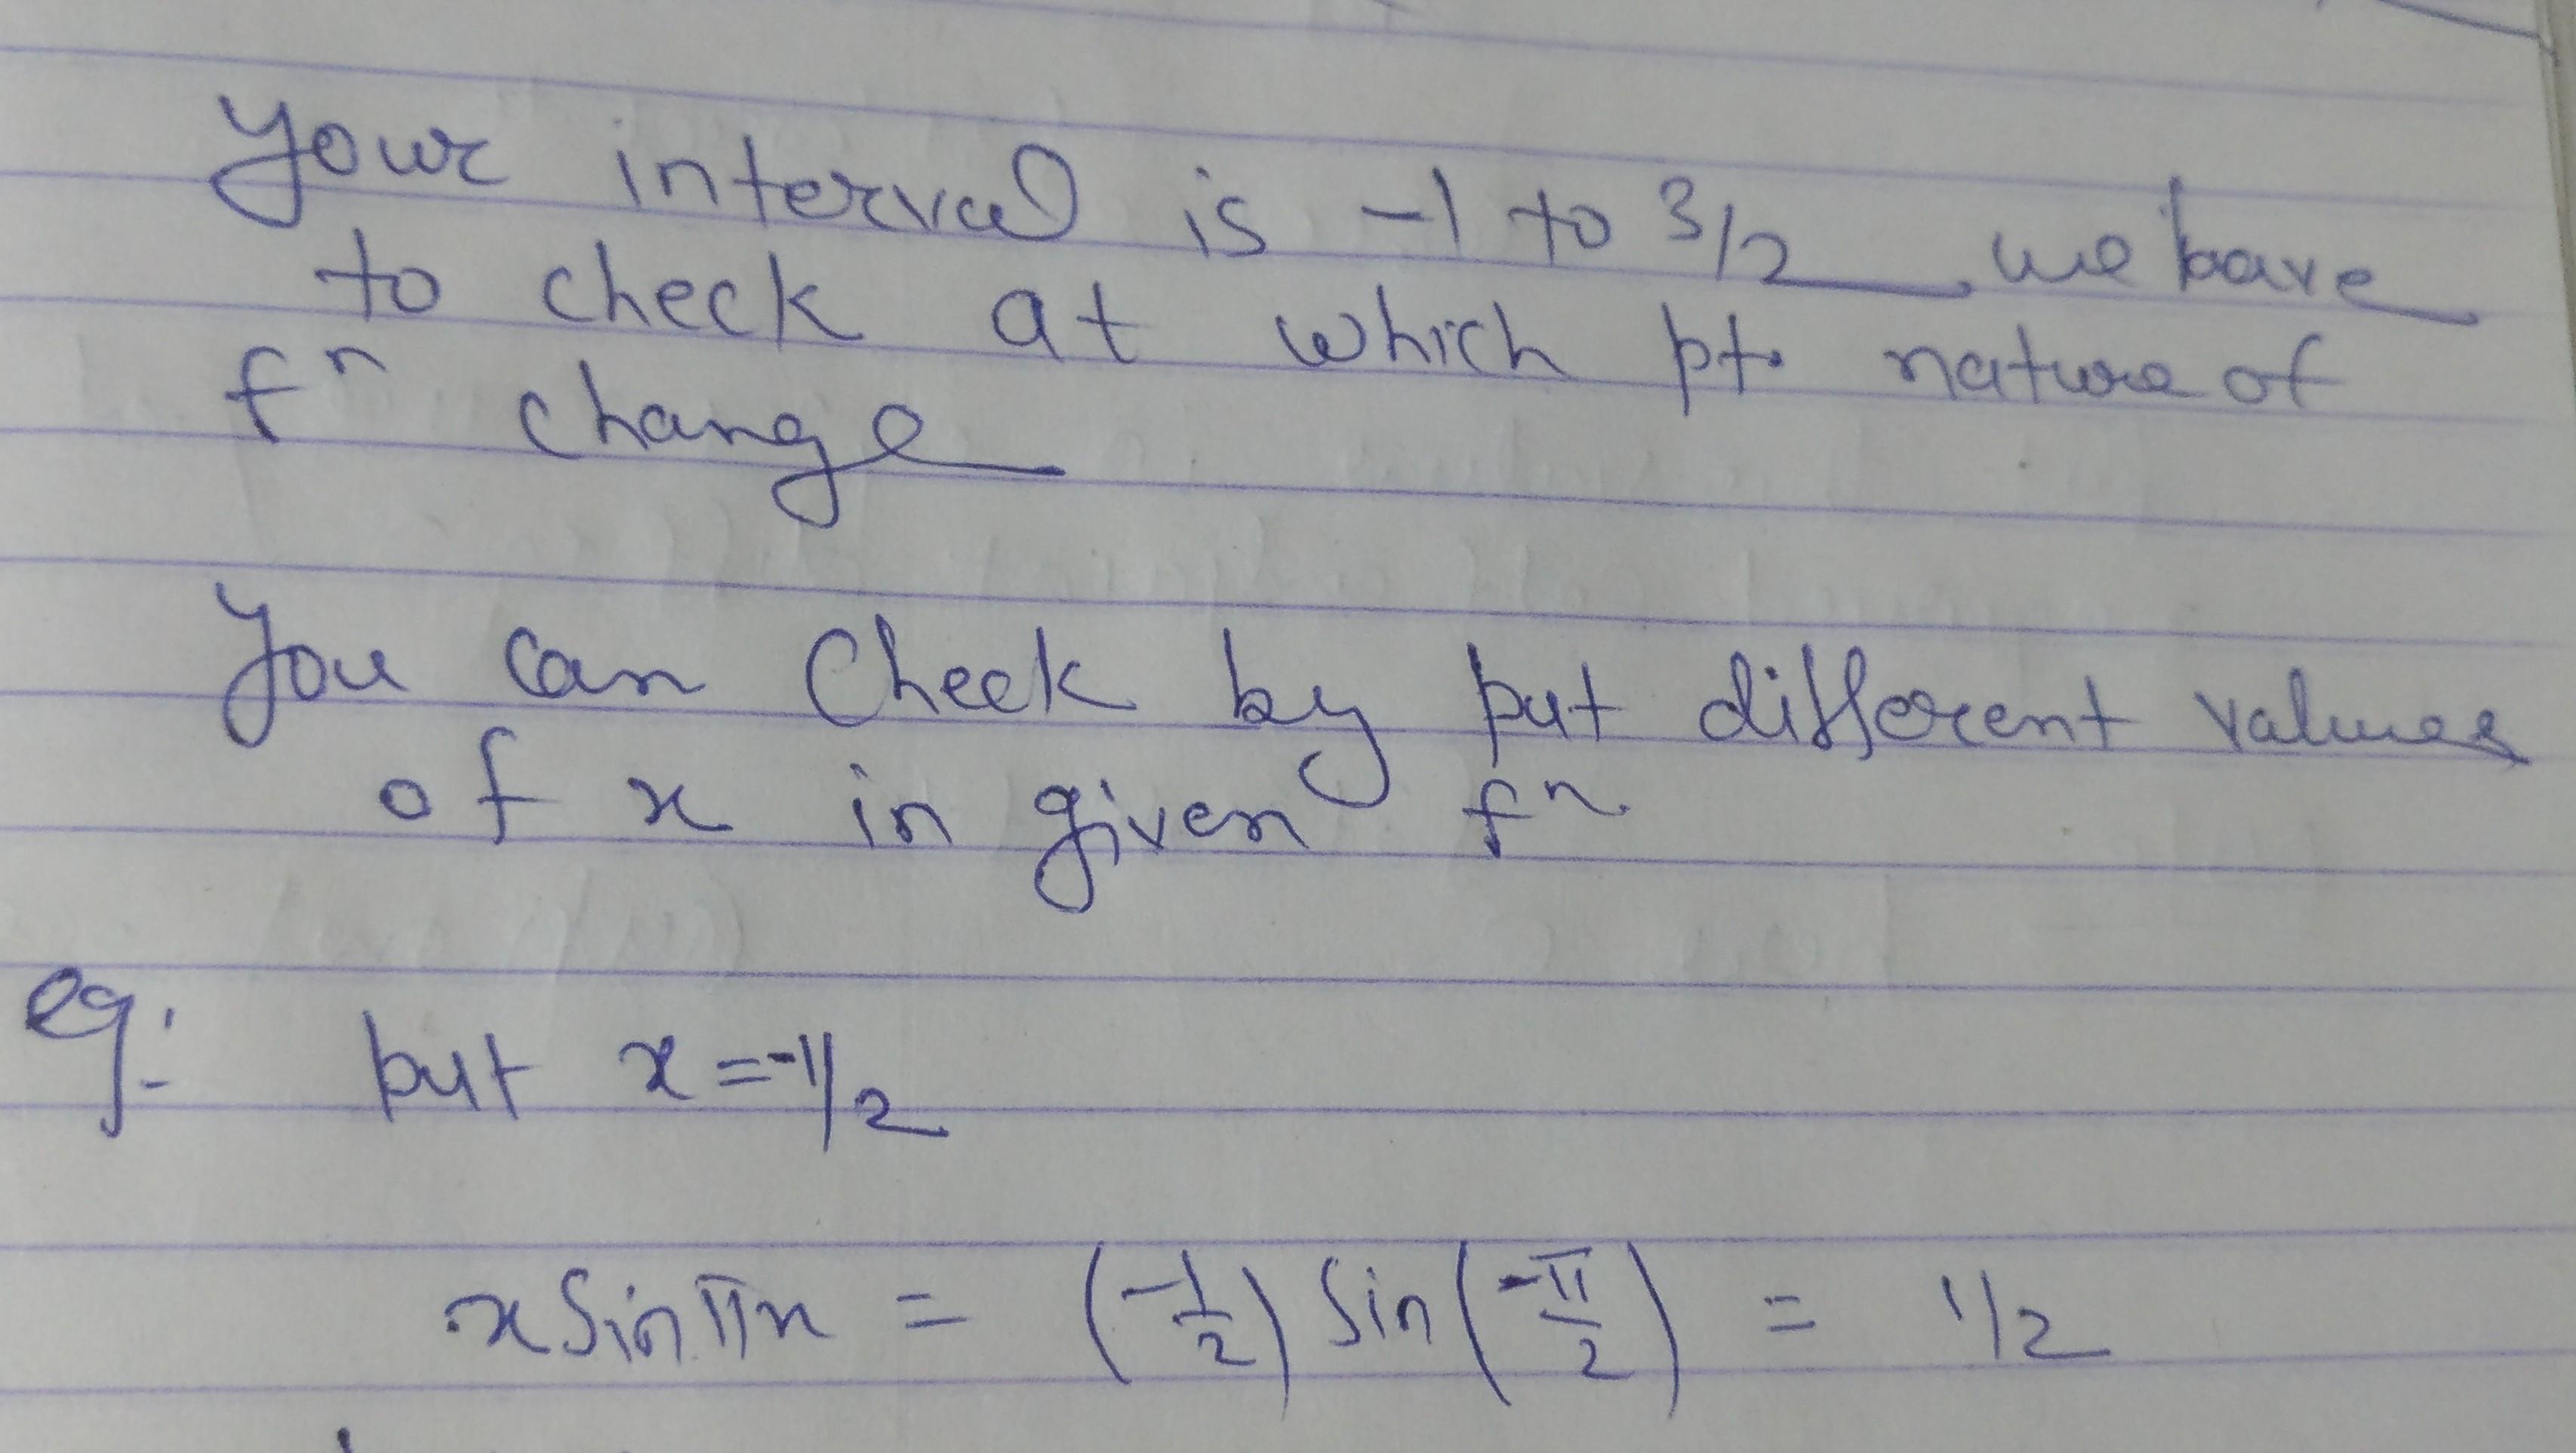 Your interval is -1 to 3/2 we have
to check at which pt. nature of
fⁿ change
You can check by put different values
of x in given fⁿ
eg:- put x = -1/2
x sin πx = (-1/2) sin (-π/2) = 1/2